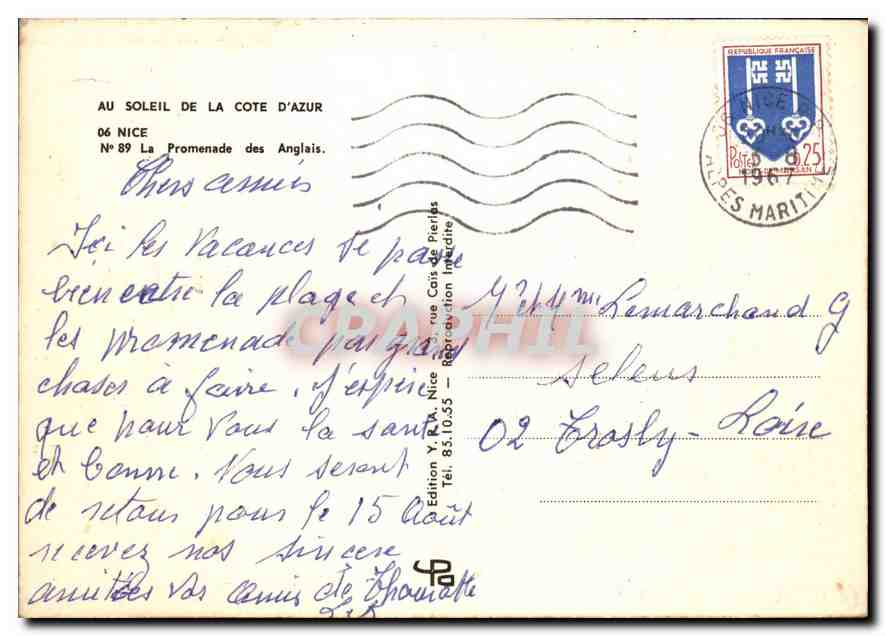 AU SOLEIL DE LA COTE D'AZUR
06 NICE
Nº 89 La Promenade des Anglais.
Chers amis
Ici les vacances se passe
bien entre la plage et
les promenade pas grand
choses à faire. J'espère
que pour vous la santé
et bonne. Nous seront
de retour pour le 15 Août
recevez nos sincere
amitiées vos amis de
Edition Y. R. A. Nice 9, rue Caïs de Pierlas
Tél. 85.10.55 — Reproduction Interdite
REPUBLIQUE FRANÇAISE
Postes 0,25
MONT-DE-MARSAN
06 NICE
8
1967
ALPES MARITIMES
Mr et Mme Lemarchand G
Selens
02 Trosly-Loire
CPAPHIL